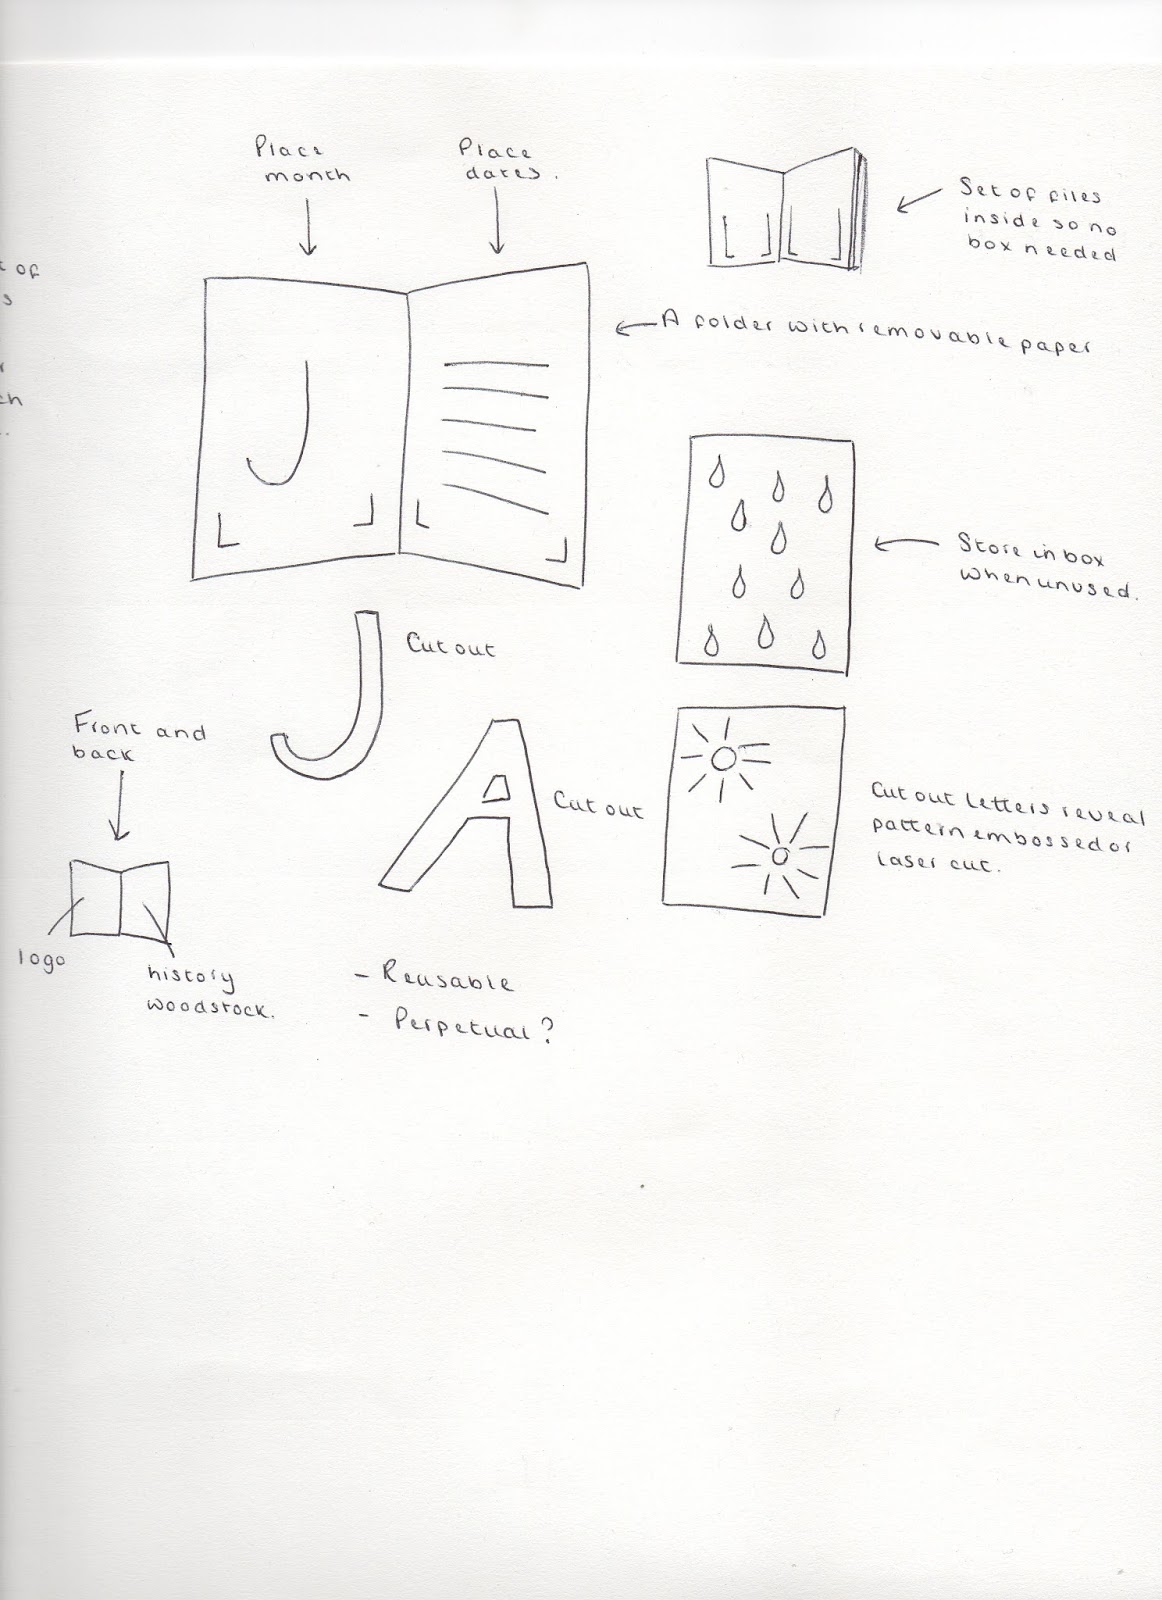 Place
month
Place
dates.
Set of files
inside so no
box needed
of
A folder with removable paper
J
Store in box
when unused.
J
Cut out
A
Cut out
Front and
back
Cut out letters reveal
pattern embossed or
laser cut.
logo
history
woodstock.
- Reusable
- Perpetual?